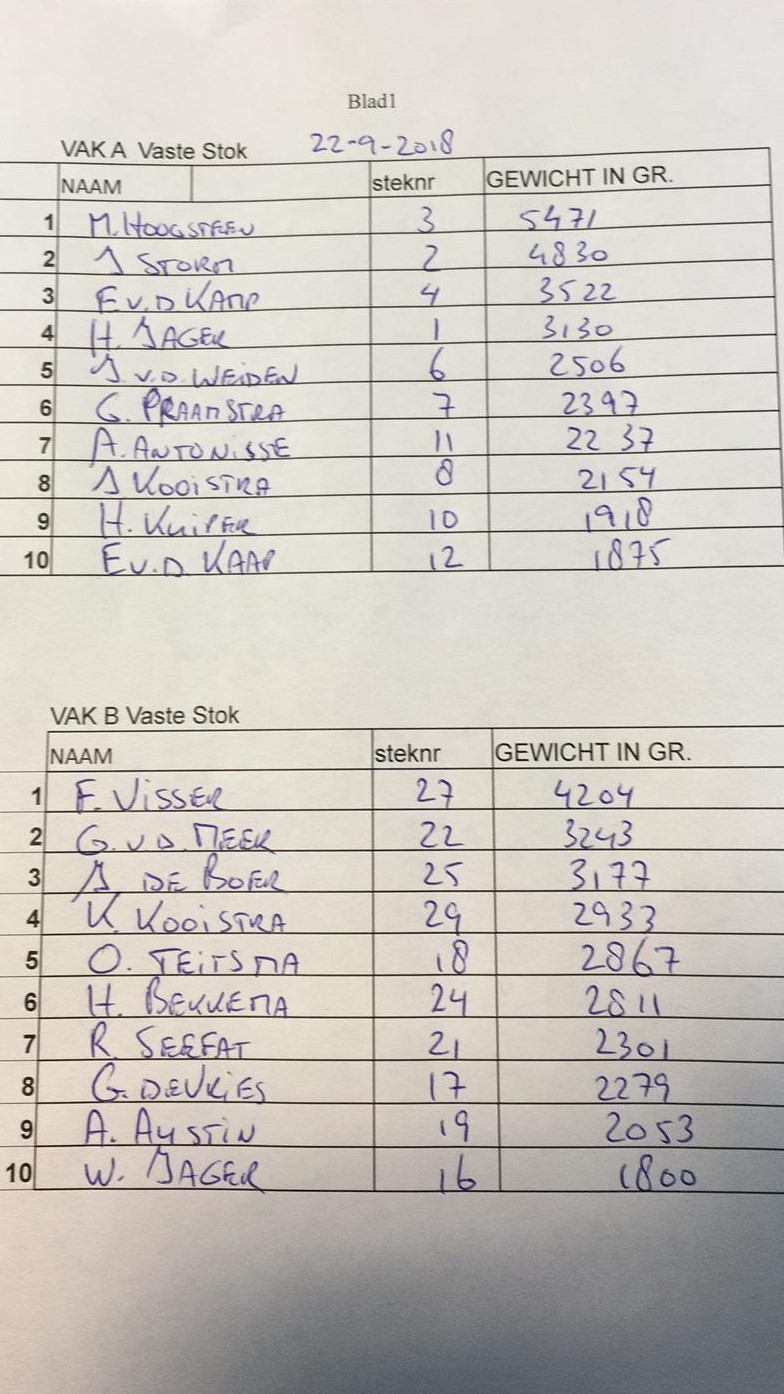 Blad1
VAK A Vaste Stok 22-9-2018
NAAM steknr GEWICHT IN GR.
1 M. HOOGSTEEN 3 5471
2 J STORM 2 4830
3 E v.D KAMP 4 3522
4 H. JAGER 1 3130
5 J v.D. WEiDEN 6 2506
6 G. PRAAMSTRA 7 2397
7 A. ANTONiSSE 11 2237
8 J KOOiSTRA 8 2154
9 H. KUiPER 10 1918
10 E v.D KAAP 12 1875
VAK B Vaste Stok
NAAM steknr GEWICHT IN GR.
1 F. ViSSER 27 4204
2 G. v D. MEER 22 3243
3 J DE BOER 25 3177
4 K. KOOiSTRA 29 2933
5 O. TEiTSMA 18 2867
6 H. BEKKEMA 24 2811
7 R SEEFAT 21 2301
8 G. DEVRiES 17 2279
9 A. AUSTiN 19 2053
10 W. JAGER 16 1800